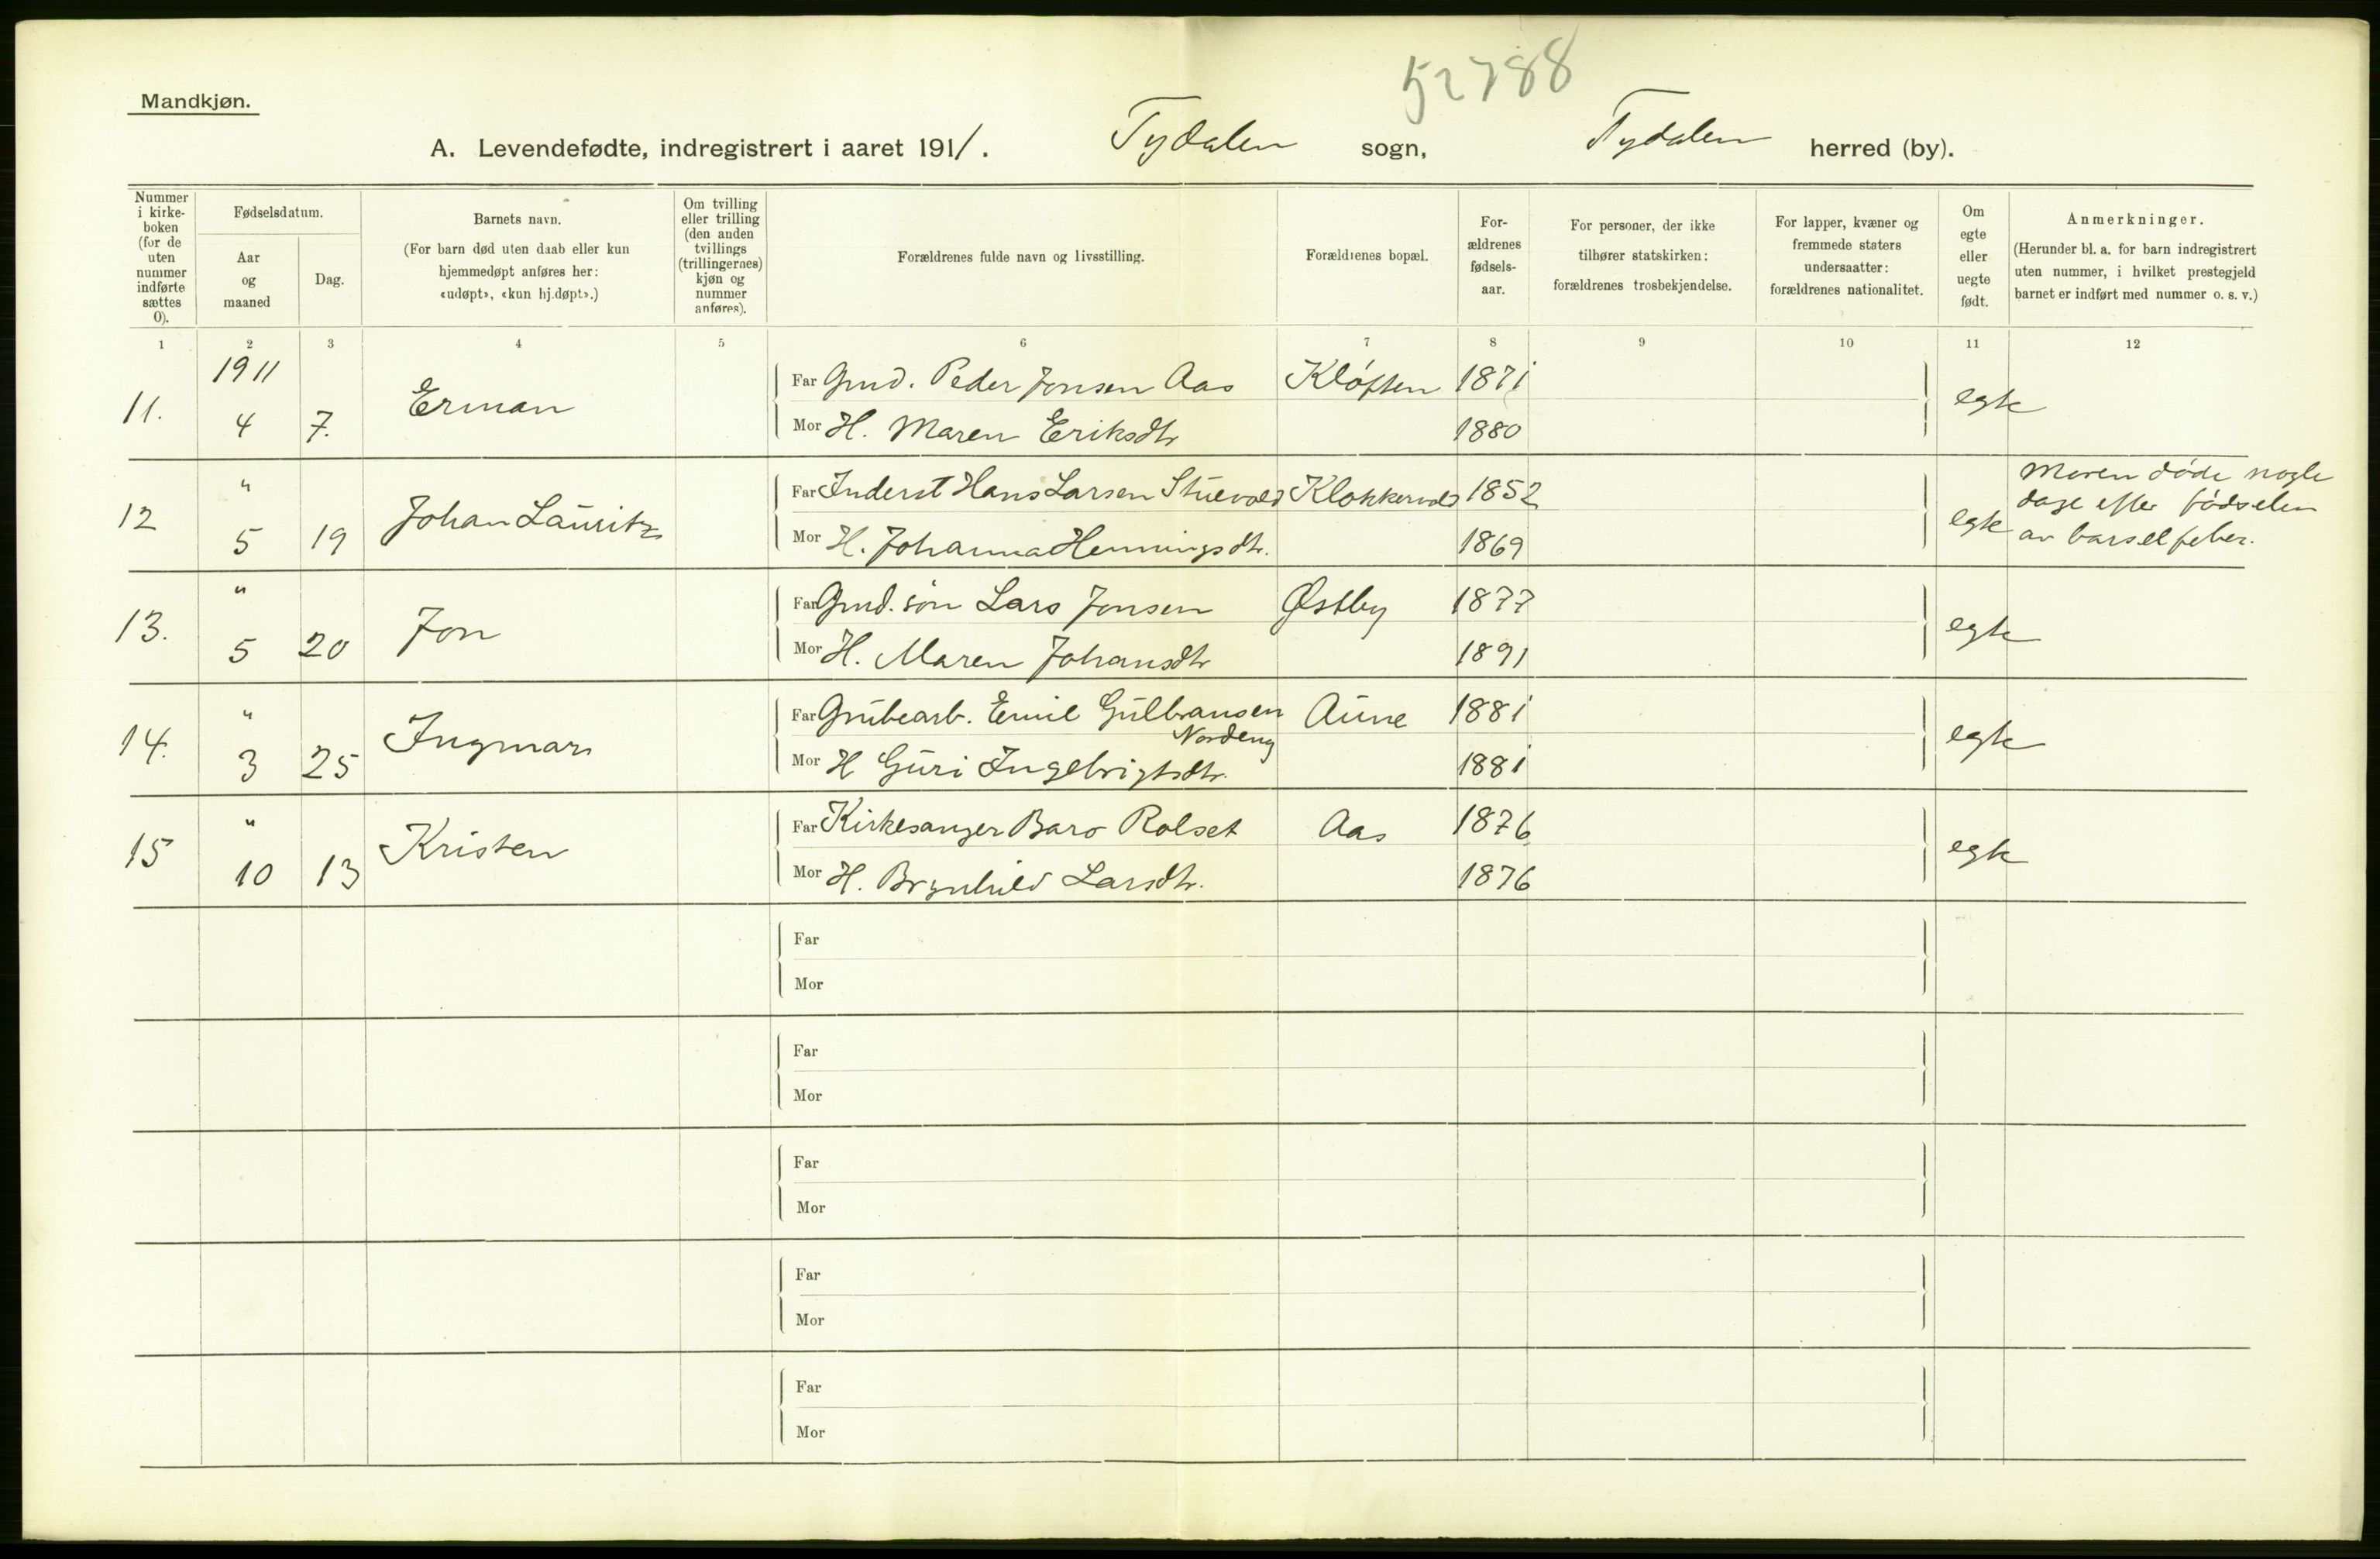 52788
Mandkjøn.
A. Levendefødte, indregistrert i aaret 1911. Tydalen sogn, Tydalen herred (by).
Nummer i kirke-boken (for de uten nummer indførte sættes 0).
Fødselsdatum.
Aar og maaned
Dag.
Barnets navn.
(For barn død uten daab eller kun hjemmedøpt anføres her: «udøpt», «kun hj.døpt».)
Om tvilling eller trilling (den anden tvillings (trillingernes) kjøn og nummer anføres).
Forældrenes fulde navn og livsstilling.
Forældrenes bopæl.
For-ældrenes fødsels-aar.
For personer, der ikke tilhører statskirken: forældrenes trosbekjendelse.
For lapper, kvæner og fremmede staters undersaatter: forældrenes nationalitet.
Om egte eller uegte født.
Anmerkninger.
(Herunder bl. a. for barn indregistrert uten nummer, i hvilket prestegjeld barnet er indført med nummer o. s. v.)
1 2 3 4 5 6 7 8 9 10 11 12
11. 1911 4 7. Erman
Far Gmd. Peder Jonsen Aas Kløften 1871 egte
Mor H. Maren Eriksdtr 1880
12 " 5 19 Johan Lauritz
Far Inderst Hans Larsen Stuevold Klokkervold 1852 egte
Mor H. Johanna Henningsdtr. 1869
Moren døde nogle
dage efter fødselen
av barselfeber.
13. " 5 20 Jon
Far Gmd. søn Lars Jonsen Østby 1877 egte
Mor H. Maren Johansdtr 1891
14. " 3 25 Ingmar
Far Grubearb. Emil Gulbransen Aune 1881 egte
Nordeng
Mor H Guri Ingebrigtsdtr. 1881
15 " 10 13 Kristen
Far Kirkesanger Baro Rolset Aas 1876 egte
Mor H. Brynhild Larsdtr. 1876
Far
Mor
Far
Mor
Far
Mor
Far
Mor
Far
Mor